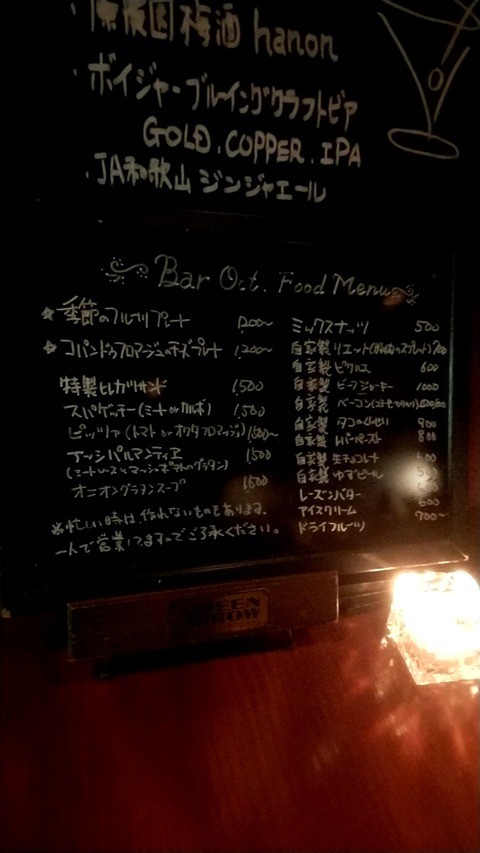 梅酒 hanon
・ボイジャーブルーイングクラフトビア
GOLD. COPPER. IPA
・JA和歌山 ジンジャエール
Bar Oct. Food Menu
☆季節のフルーツプレート 1200〜
☆コパンドゥフロマージュのチーズプレート 1,200〜
特製ヒレカツサンド 1,500
スパゲッティー(ミート or カルボ) 1,500
ピッツァ(トマト or オクタフロマッジ) 1,500〜
アッシパルマンティエ 1,500
(ミートソースとマッシュポテトのグラタン)
オニオングラタンスープ 1,600
※忙しい時は作れないものもあります。
一人で営業してますのでご了承ください。
ミックスナッツ 500
自家製 リエット 700
自家製 ピクルス 600
自家製 ビーフジャーキー 1000
自家製 ベーコン
自家製 タコのくんせい 900
自家製 レバーペースト 800
自家製 生チョコレート
自家製 ゆずピール
レーズンバター
アイスクリーム
ドライフルーツ 700〜